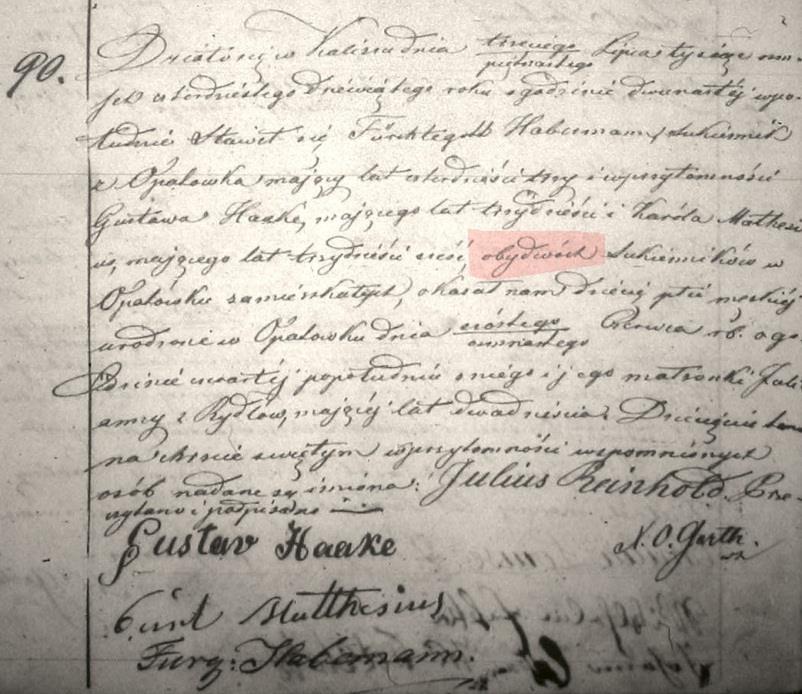 90.
Działo się w Kaliszu dnia trzeciego / piętnastego Lipca tysiąc ośm-
set czterdziestego dziewiątego roku o godzinie dwunastéj w po-
łudnie Stawił się Fürchtegott Habermann, Sukiennik
z Opatowka mający lat czterdzieści trzy i w przytomności
Gustawa Haake, mającego lat trzydzieści i Karóla Mathesi-
us, mającego lat trzydzieści sześć obydwóch Sukienników w
Opatówku zamieszkałych, okazał nam dziecię płci męskiéj
urodzone w Opatowku dnia szóstego / ośmnastego Czerwca rb. o go-
dzinie czwartéj popołudniu z niégo i jego małżonki Juli-
anny z Rydlów, mającéj lat dwadzieścia. Dziecięciu temu
na chrzcie świętym w przytomności wspomnionych
osób nadane są imiona: Julius Reinhold. Prze-
czytano i podpisano
Gustav Haake
Carl Matthesius
Furg: Habemann.